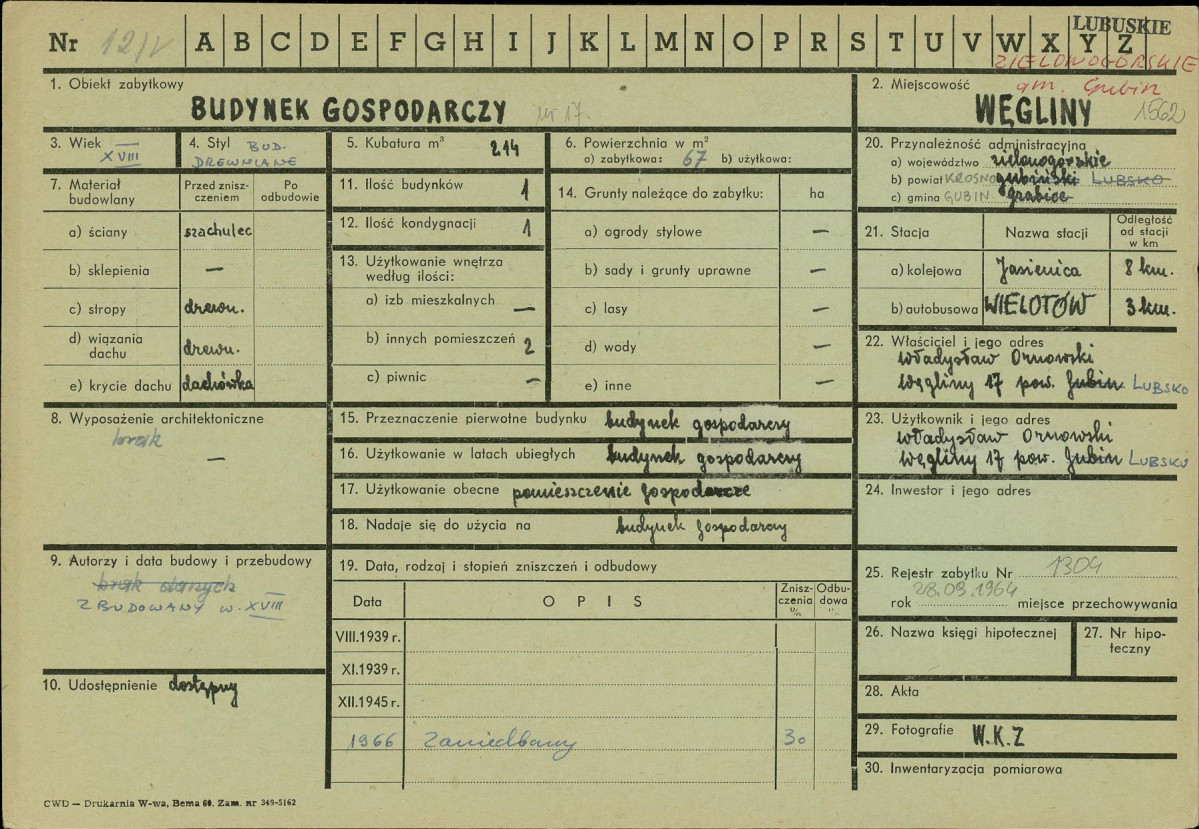 Nr 12/V A B C D E F G H I J K L M N O P R S T U V W X Y Z LUBUSKIE
ZIELONOGÓRSKIE
gm. Gubin
1. Obiekt zabytkowy
BUDYNEK GOSPODARCZY nr 17.
2. Miejscowość
WĘGLINY 1562
3. Wiek XVIII
4. Styl BUD. DREWNIANE
5. Kubatura m³ 214
6. Powierzchnia w m²
a) zabytkowa: 67 b) użytkowa:
7. Materiał budowlany
Przed zniszczeniem
Po odbudowie
a) ściany szachulec
b) sklepienia —
c) stropy drewn.
d) wiązania dachu drewn.
e) krycie dachu dachówka
8. Wyposażenie architektoniczne
brak
—
9. Autorzy i data budowy i przebudowy
brak danych
ZBUDOWANY W. XVIII
10. Udostępnienie dostępny
11. Ilość budynków 1
12. Ilość kondygnacji 1
13. Użytkowanie wnętrza według ilości:
a) izb mieszkalnych —
b) innych pomieszczeń 2
c) piwnic —
14. Grunty należące do zabytku: ha
a) ogrody stylowe —
b) sady i grunty uprawne —
c) lasy —
d) wody —
e) inne —
15. Przeznaczenie pierwotne budynku budynek gospodarczy
16. Użytkowanie w latach ubiegłych budynek gospodarczy
17. Użytkowanie obecne pomieszczenie gospodarcze
18. Nadaje się do użycia na budynek gospodarczy
19. Data, rodzaj i stopień zniszczeń i odbudowy
Data OPIS Zniszczenia % Odbudowa %
VIII.1939 r.
XI.1939 r.
XII.1945 r.
1966 Zaniedbany 30
20. Przynależność administracyjna
a) województwo zielonogórskie
b) powiat KROSNO gubiński LUBSKO
c) gmina GUBIN grabice
21. Stacja Nazwa stacji Odległość od stacji w km
a) kolejowa Jasienica 8 km.
b) autobusowa WIELOTÓW 3 km.
22. Właściciel i jego adres
Władysław Ornowski
Węgliny 17 pow. Gubin LUBSKO
23. Użytkownik i jego adres
Władysław Ornowski
Węgliny 17 pow. Gubin LUBSKO
24. Inwestor i jego adres
25. Rejestr zabytku Nr 1304
28.09.1964
rok miejsce przechowywania
26. Nazwa księgi hipotecznej
27. Nr hipoteczny
28. Akta
29. Fotografie W.K.Z
30. Inwentaryzacja pomiarowa
CWD — Drukarnia W-wa, Bema 60. Zam. nr 349-5162